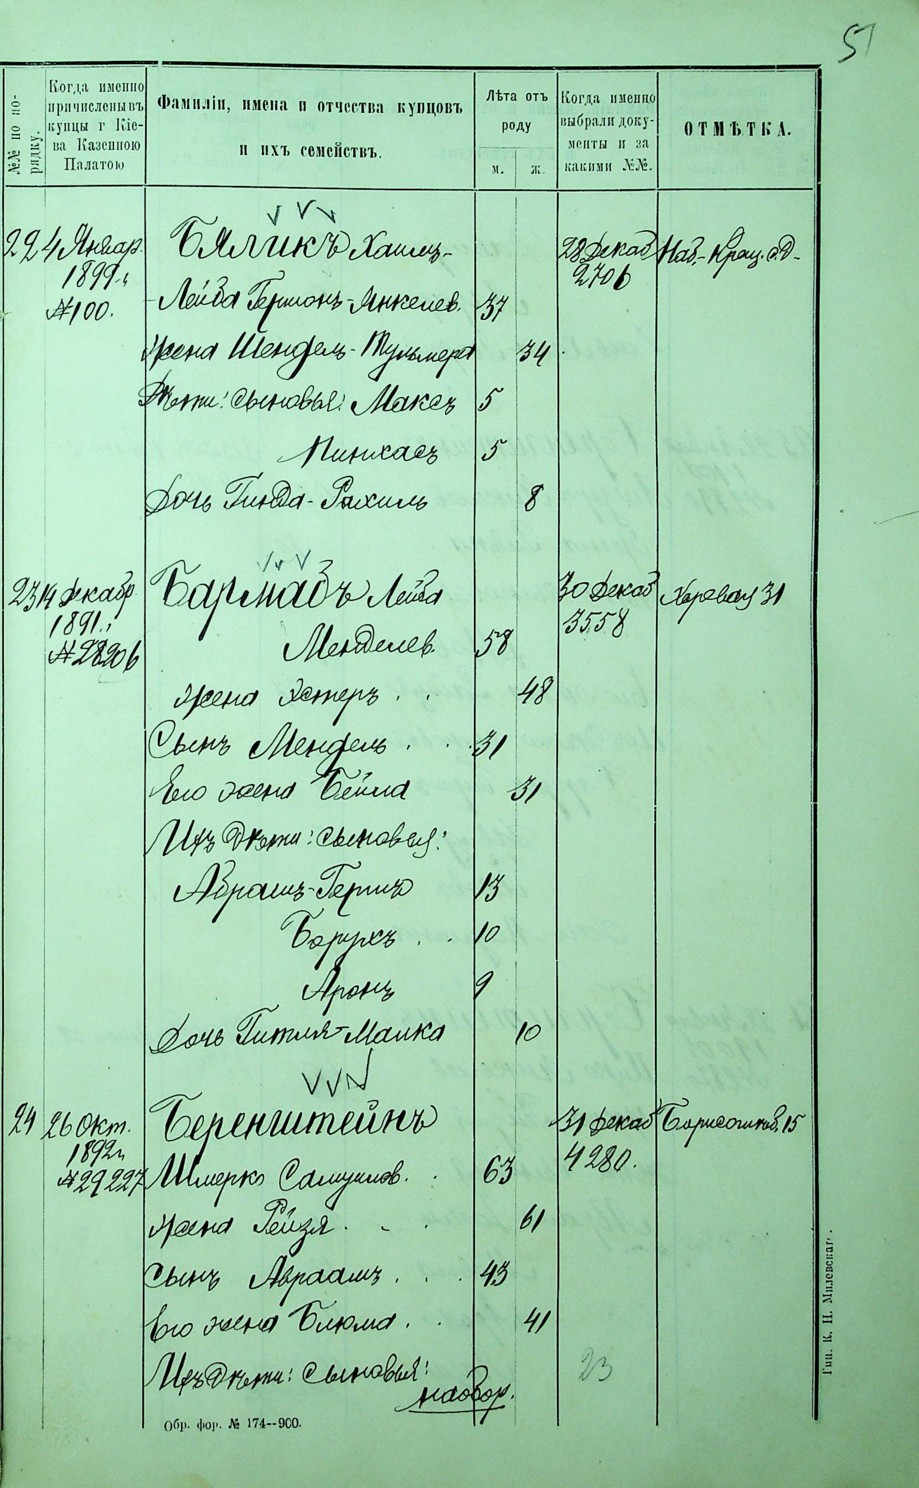 51
№№ по по-
рядку.
Когда именно
причислены въ
купцы г. Кіе-
ва Казенною
Палатою
Фамиліи, имена и отчества купцовъ
и ихъ семействъ.
Лѣта отъ
роду
м. ж.
Когда именно
выбрали доку-
менты и за
какими №№.
ОТМѢТКА.
22 4 Январ. Бяликъ Хаимъ- 28 Декаб
1899 г. 2706
№100. Лейба Гершонъ-Янкелев. 37
Жена Шендель- 34
Дѣти: сыновья: Максъ 5
Пинхасъ 5
Дочь Гинда-Рахиль 8
23 14 Декабр. Бармадъ Лейба 30 Декаб Хоревая 31
1891 г. 3558
№28206 Менделев. 58
Жена Эстеръ . . 48
Сынъ Мендель . . 31
Его жена Бейла 31
Ихъ дѣти: сыновья:
Абрамъ-Гершъ 13
Борухъ . . 10
Аронъ 9
Дочь Гитля-Малка 10
24 26 Окт. Беренштейнъ 31 Декаб 15
1892 г. 4280.
№29227 Шмерко Самуилов. . 63
Жена Рейзя . . . 61
Сынъ Авраамъ . . . 43
Его жена Блюма . . 41
Ихъ дѣти: сыновья:
наобор.
23
Обр. фор. № 174--900.
Тип. К. Н. Милевскаг.